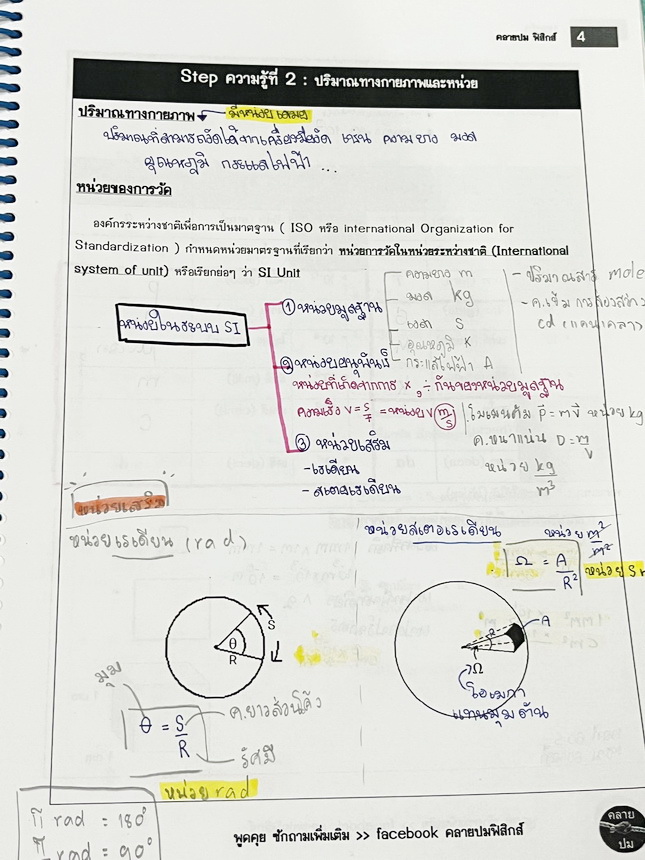 คลายปม ฟิสิกส์ 4
Step ความรู้ที่ 2 : ปริมาณทางกายภาพและหน่วย
ปริมาณทางกายภาพ มีหน่วยเสมอ
ปริมาณที่สามารถวัดได้จากเครื่องมือวัด เช่น ความยาว มวล
อุณหภูมิ กระแสไฟฟ้า ...
หน่วยของการวัด
องค์กรระหว่างชาติเพื่อการเป็นมาตฐาน ( ISO หรือ international Organization for
Standardization ) กำหนดหน่วยมาตรฐานที่เรียกว่า หน่วยการวัดในหน่วยระหว่างชาติ (International
system of unit) หรือเรียกย่อๆ ว่า SI Unit
หน่วยในระบบ SI
① หน่วยมูลฐาน
ความยาว m
มวล kg
เวลา s
อุณหภูมิ K
กระแสไฟฟ้า A
- ปริมาณสาร mole
- ค.เข้มการส่องสว่าง
cd (แคนเดลา)
② หน่วยอนุพันธ์
หน่วยที่เกิดจากการ ×, ÷ กันของหน่วยมูลฐาน
ความเร็ว v = s/t = หน่วย v m/s
โมเมนตัม P = mv หน่วย kg
ค.หนาแน่น D = m/v
หน่วย kg/m³
③ หน่วยเสริม
- เรเดียน
- สเตอเรเดียน
หน่วยเสริม
หน่วยเรเดียน (rad)
S
θ
R
มุม
θ = S/R
ค.ยาวส่วนโค้ง
รัศมี
หน่วย rad
π rad = 180°
π rad = 90°
หน่วยสเตอเรเดียน
หน่วย m²/m²
Ω = A/R²
หน่วย Sr
A
R
Ω
โอเมกา
แทนมุมตัน
พูดคุย ซักถามเพิ่มเติม >> facebook คลายปมฟิสิกส์
คลาย
ปม